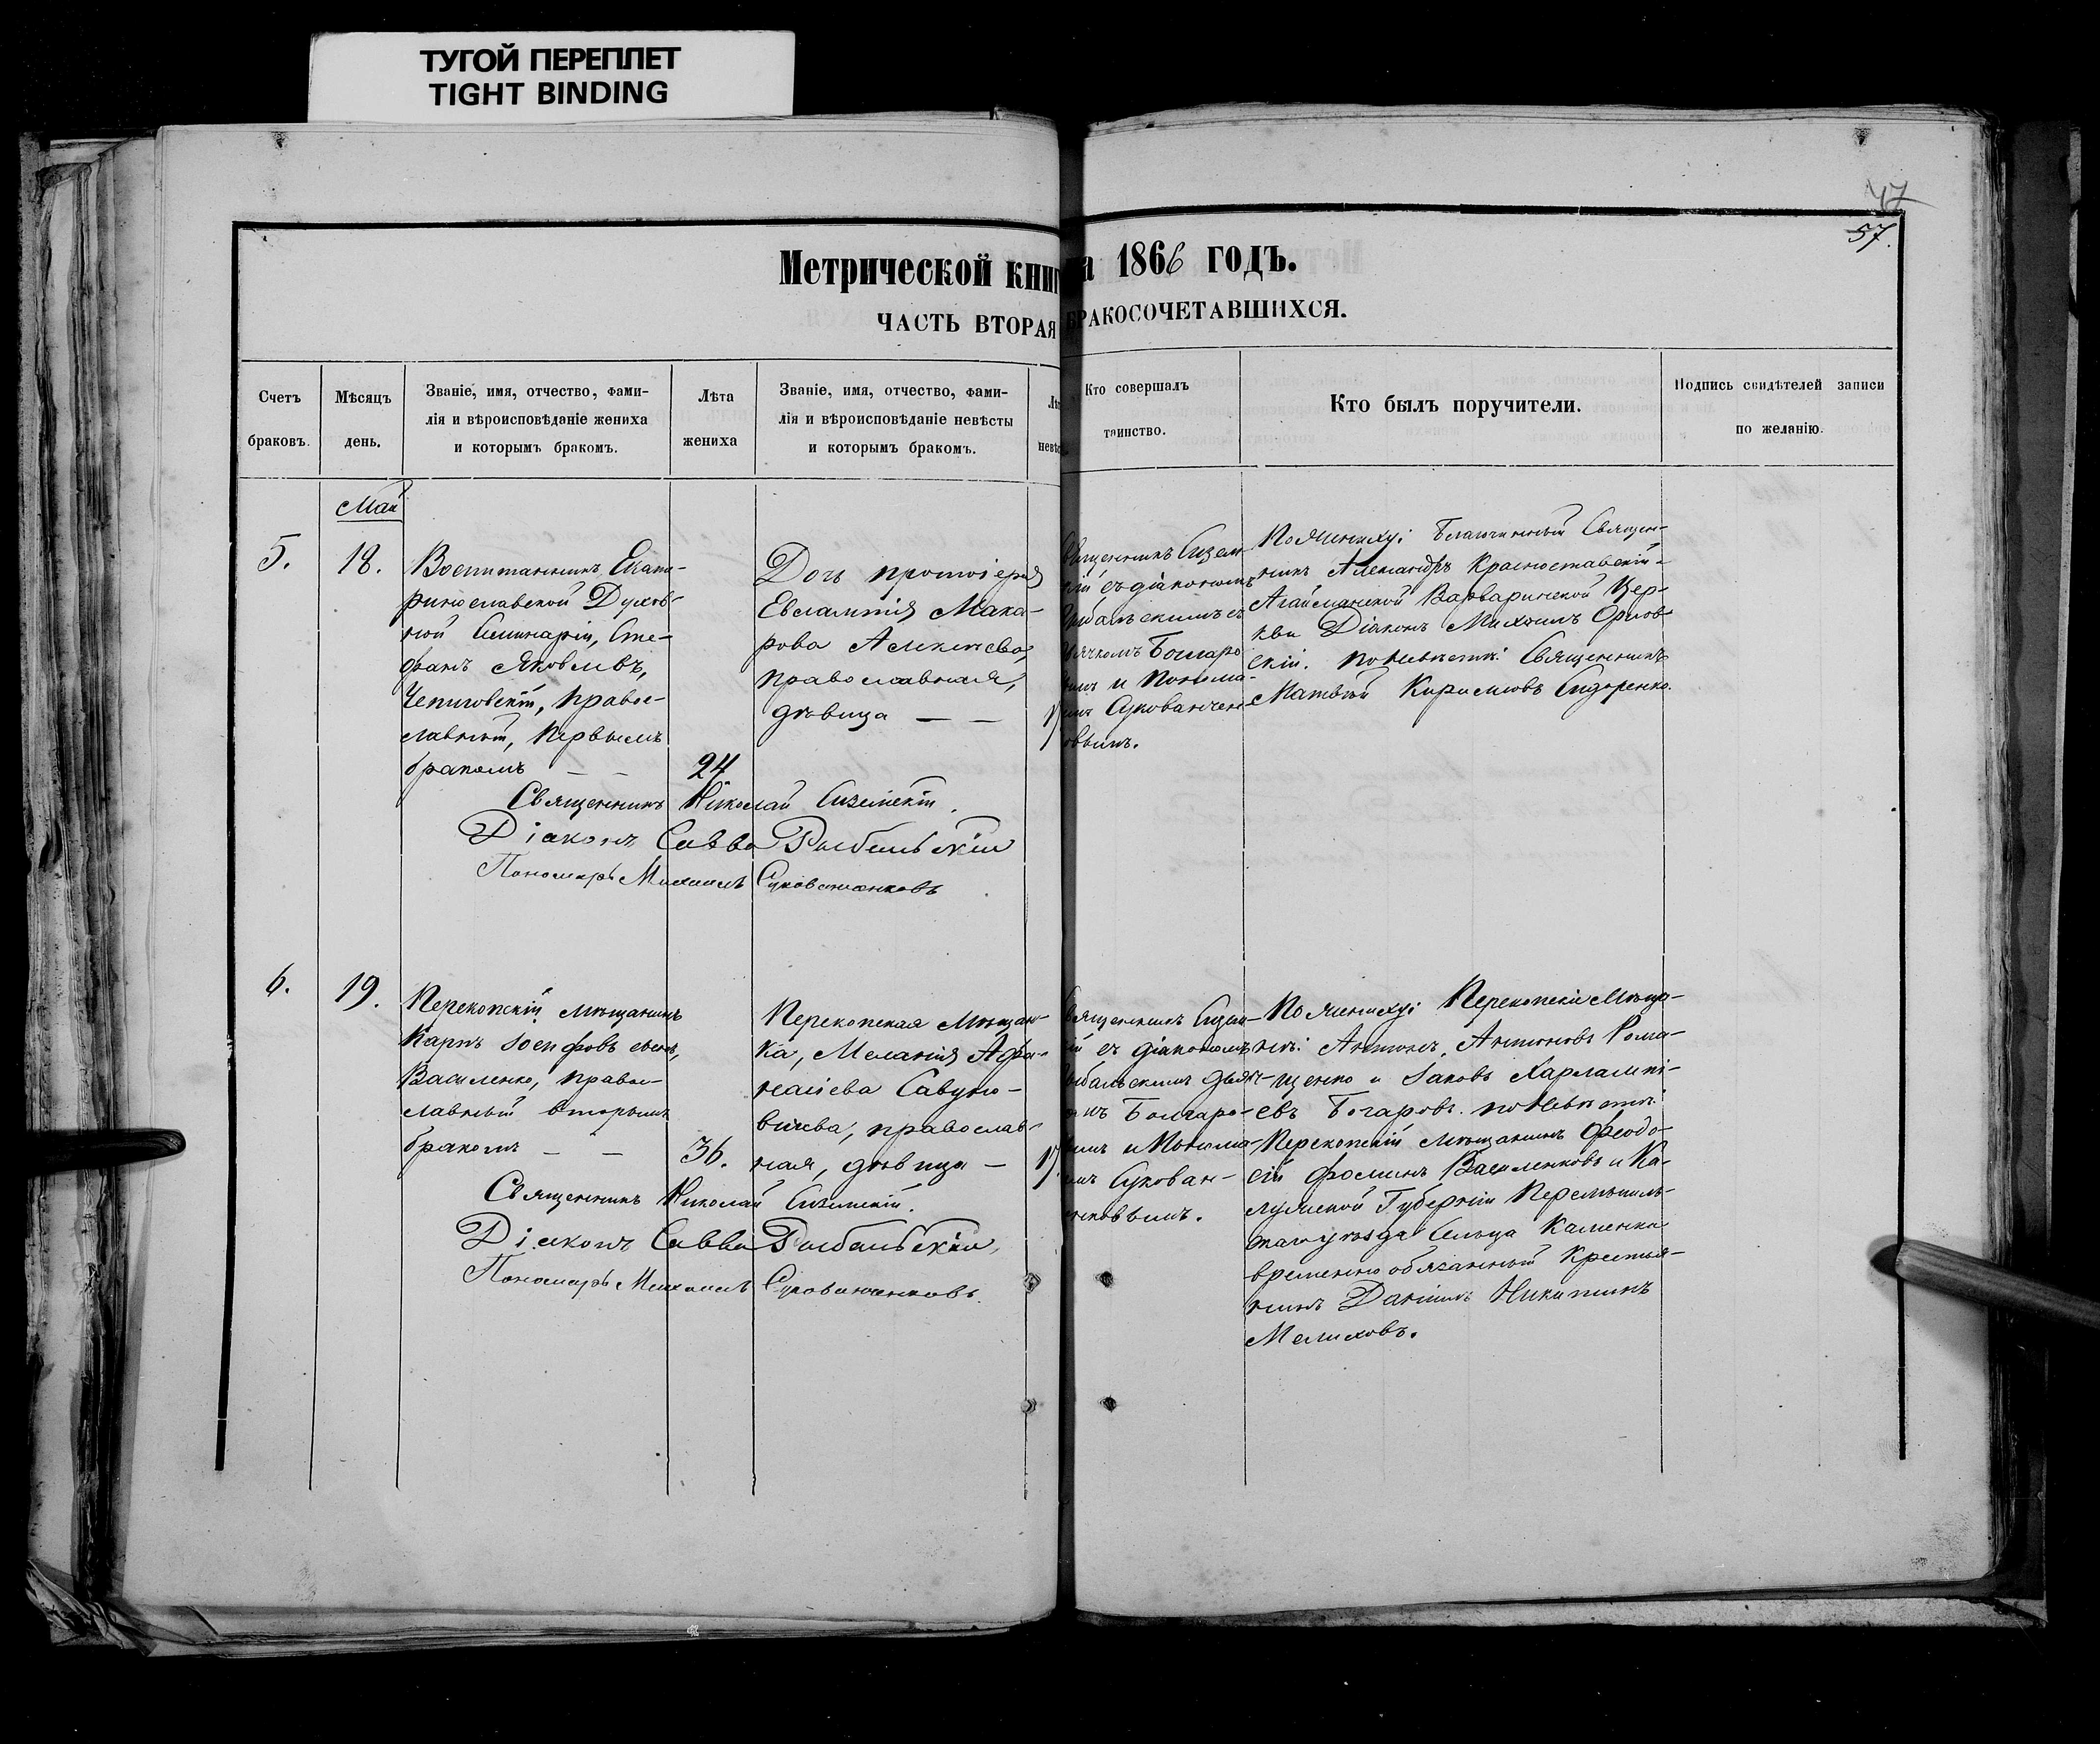 ТУГОЙ ПЕРЕПЛЕТ
TIGHT BINDING
47
57.
Метрической книг а 1866 годъ.
ЧАСТЬ ВТОРАЯ БРАКОСОЧЕТАВШИХСЯ.
Счетъ браковъ.
Мѣсяцъ день.
Званіе, имя, отчество, фами-
лія и вѣроисповѣданіе жениха
и которымъ бракомъ.
Лѣта жениха
Званіе, имя, отчество, фами-
лія и вѣроисповѣданіе невѣсты
и которымъ бракомъ.
Кто совершалъ
таинство.
Кто былъ поручители.
Подпись свидѣтелей записи
по желанію.
Май
5.
18.
Воспитанникъ Екате-
ринославской Духов-
ной Семинаріи, Сте-
фанъ Яковлевъ,
православный, первымъ
бракомъ — —
24.
Дочь протоіерея
Евлампія Мака-
рова Алексѣева,
православная,
дѣвица — —
Священникъ
кій съ діакономъ
Рыбальскимъ съ
дьячкомъ Болгаро
вымъ и понома-
ремъ Сукованчен-
ковымъ.
По женихѣ: Благочинный Священ-
никъ Александръ Красноставскій и
Агайманской Варваринской Цер-
кви Діаконъ Михаилъ Орлов-
скій. по невѣстѣ: Священникъ
Матвѣй Кириловъ Сидоренко.
Священникъ Николай
Діаконъ Савва Рыбальскій
Пономарь Михаилъ Сукованченковъ
6.
19.
Перекопскій мѣщанинъ
Карпъ Іосифовъ сынъ,
Василенко, правос-
лавный вторымъ
бракомъ — —
36.
Перекопская мѣщан-
ка, Меланія Афа-
насіева Савуно-
вичева, православ-
ная, дѣвица —
Священникъ
кій съ діакономъ
Рыбальскимъ дьяч-
комъ Болгаро-
вымъ и понома-
ремъ Сукован-
ченковымъ.
По женихѣ: Перекопскіе мѣща-
не: Антонъ Антоновъ Рома-
щенко и Іаковъ Харлампі-
евъ Бочаровъ. по невѣстѣ:
Перекопскій мѣщанинъ Феодо-
сій Фоминъ Василенковъ и Ка-
лужской Губерніи Перемышль-
скаго уѣзда Сельца Каменки
временно обязанный крестья-
нинъ Даніилъ Никитинъ
Мелиховъ.
Священникъ Николай
Діаконъ Савва Рыбальскій
Пономарь Михаилъ Сукованченковъ